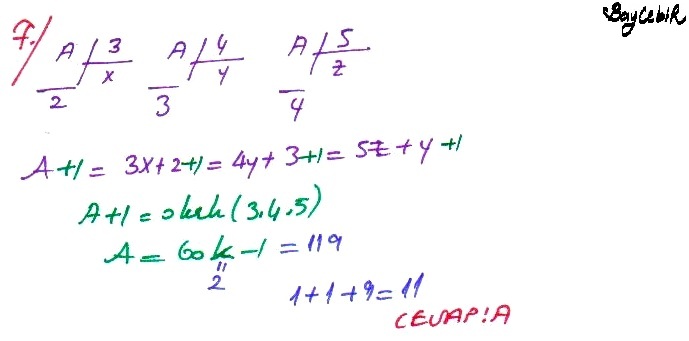 BayCebiR
7.) A 3 A 4 A 5
x y z
2 3 4
A+1 = 3x+2+1 = 4y+3+1 = 5z+4+1
A+1 = okek(3,4,5)
A = 60k-1 = 119
"
2
1+1+9=11
CEVAP!A